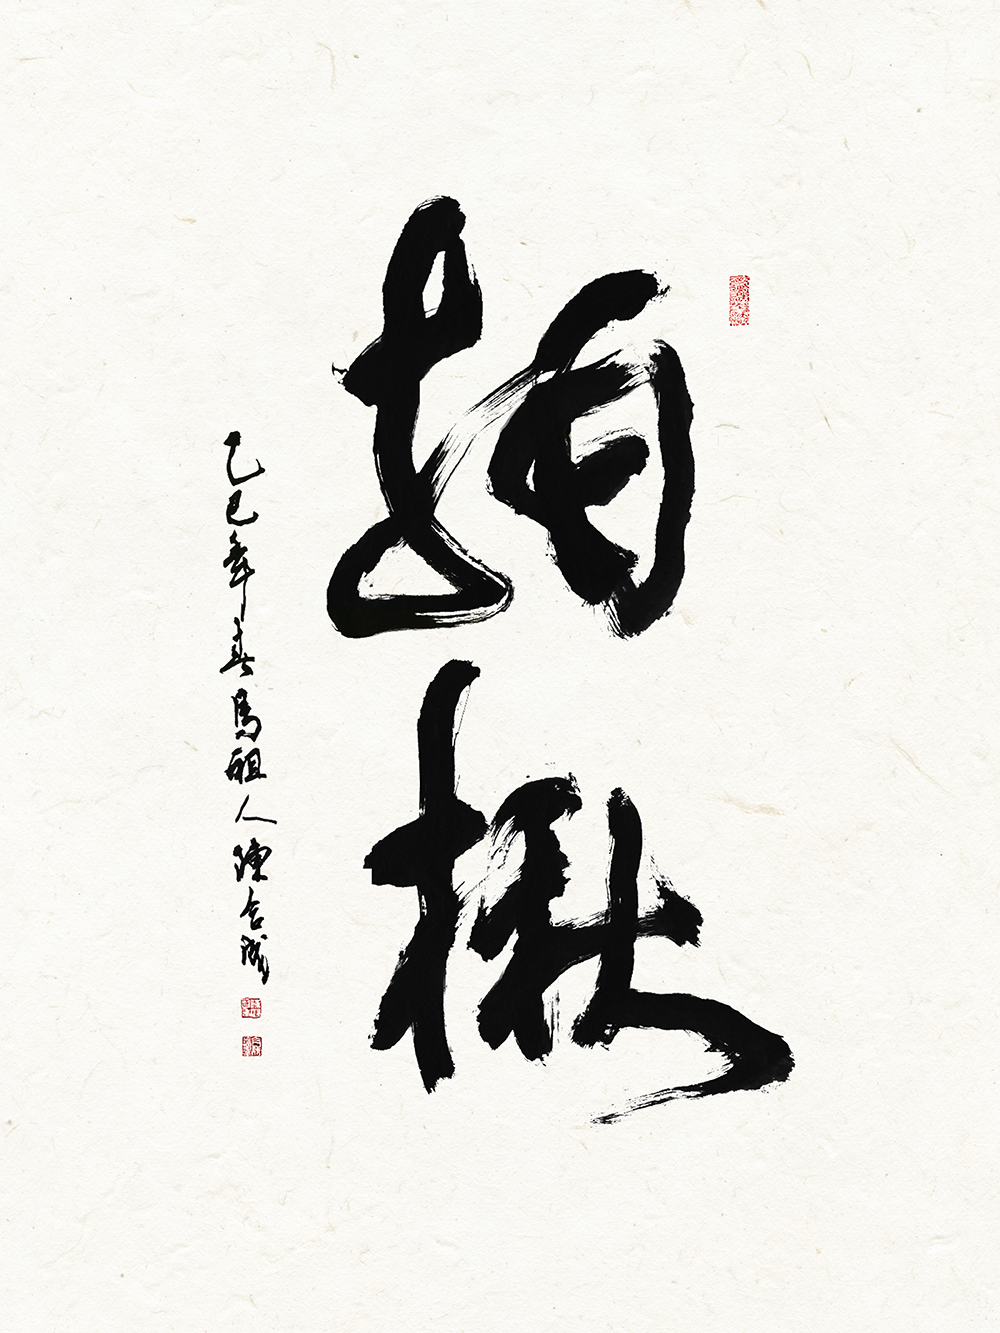 韵楸
乙巳年春馬祖人陳合成